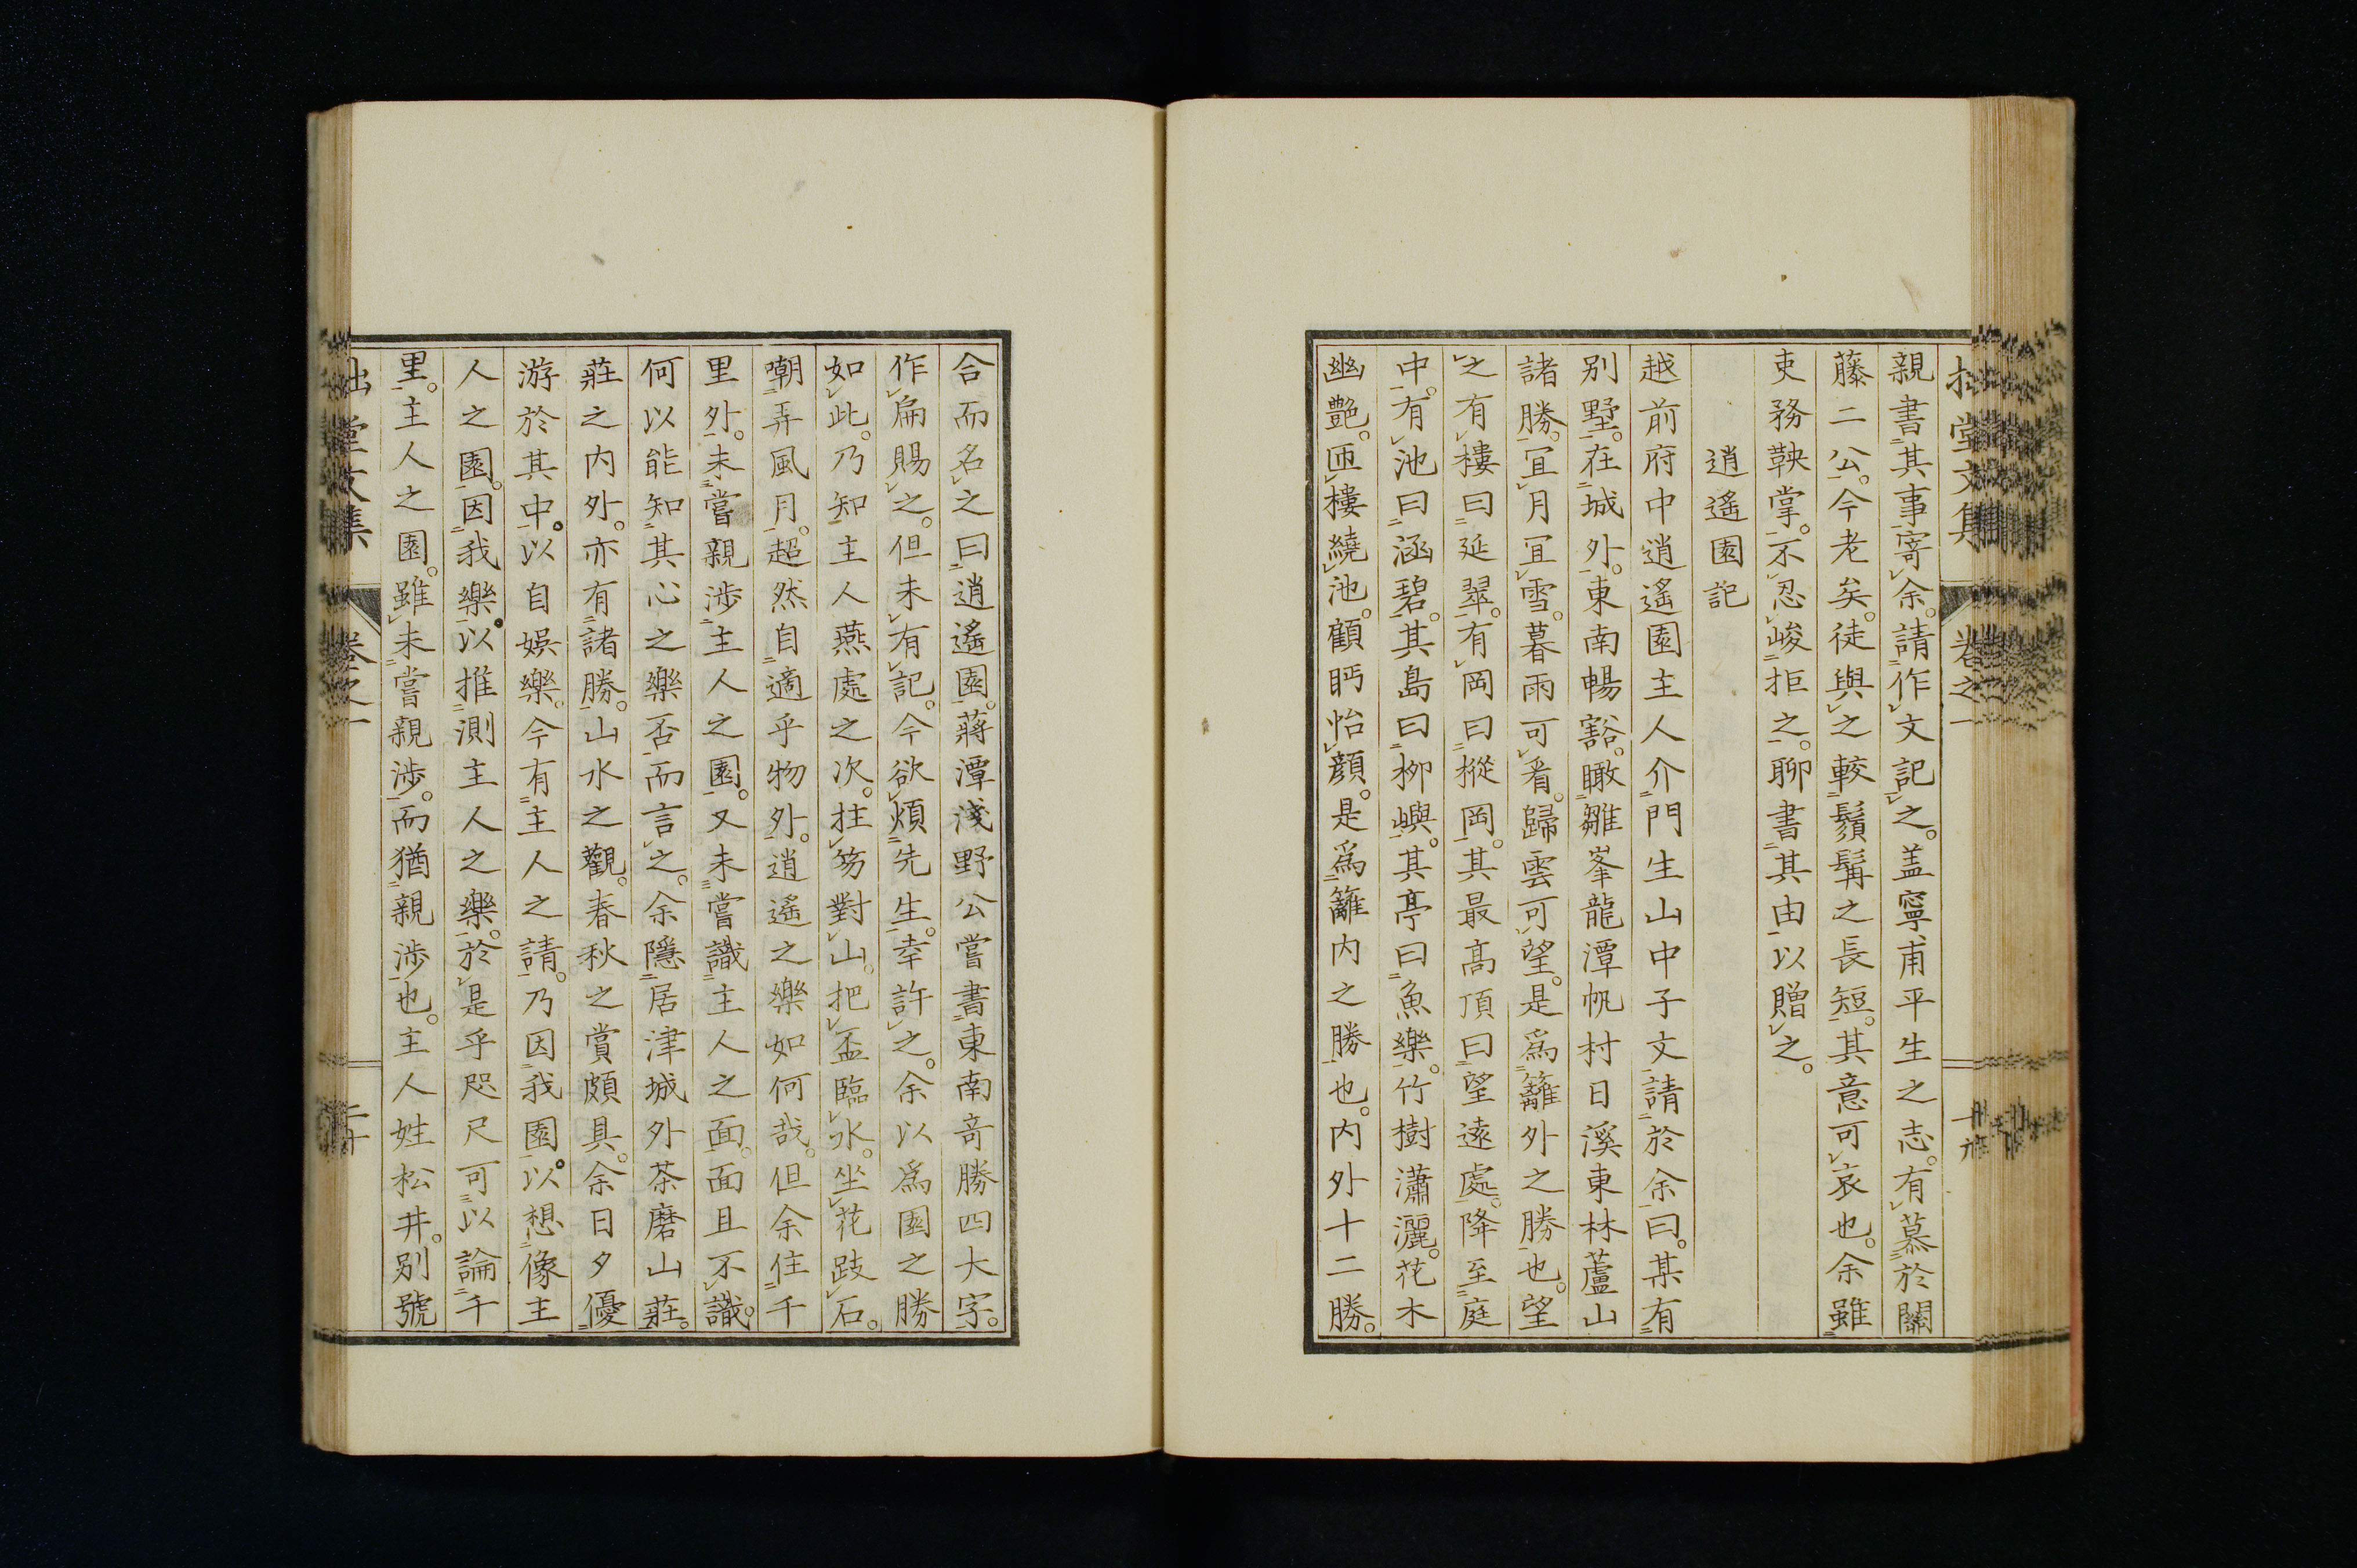 親書其事寄余。請作文記之。盖寧甫平生之志。有慕於關
藤二公。今老矣。徒與之較鬚髯之長短。其意可哀也。余雖
吏務鞅掌。不忍峻拒之。聊書其由以贈之。
逍遙園記
越前府中逍遙園主人介門生山中子文請於余曰。某有
別墅。在城外。東南暢豁。瞰雛峯龍潭帆村日溪東林蘆山
諸勝。宜月宜雪。暮雨可看。歸雲可望。是爲籬外之勝也。望
之有樓曰延翠。有岡曰摐岡。其最高頂曰望遠處。降至庭
中。有池曰涵碧。其島曰柳嶼。其亭曰魚樂。竹樹瀟灑。花木
幽艶。匝樓繞池。顧眄怡顔。是爲籬内之勝也。内外十二勝。
合而名之曰逍遙園。蔣潭淺野公嘗書東南奇勝四大字。
作扁賜之。但未有記。今欲煩先生。幸許之。余以爲園之勝
如此。乃知主人燕處之次。拄笏對山。把盃臨水。坐花跂石。
嘲弄風月。超然自適乎物外。逍遙之樂如何哉。但余住千
里外。未嘗親涉主人之園。又未嘗識主人之面。面且不識。
何以能知其心之樂否而言之。余隱居津城外茶磨山莊。
莊之内外。亦有諸勝。山水之觀。春秋之賞頗具。余日夕優
游於其中。以自娯樂。今有主人之請。乃因我園。以想像主
人之園。因我樂。以推測主人之樂。於是乎咫尺可以論千
里。主人之園。雖未嘗親涉。而猶親涉也。主人姓松井。別號
堂文集
卷之一
二十